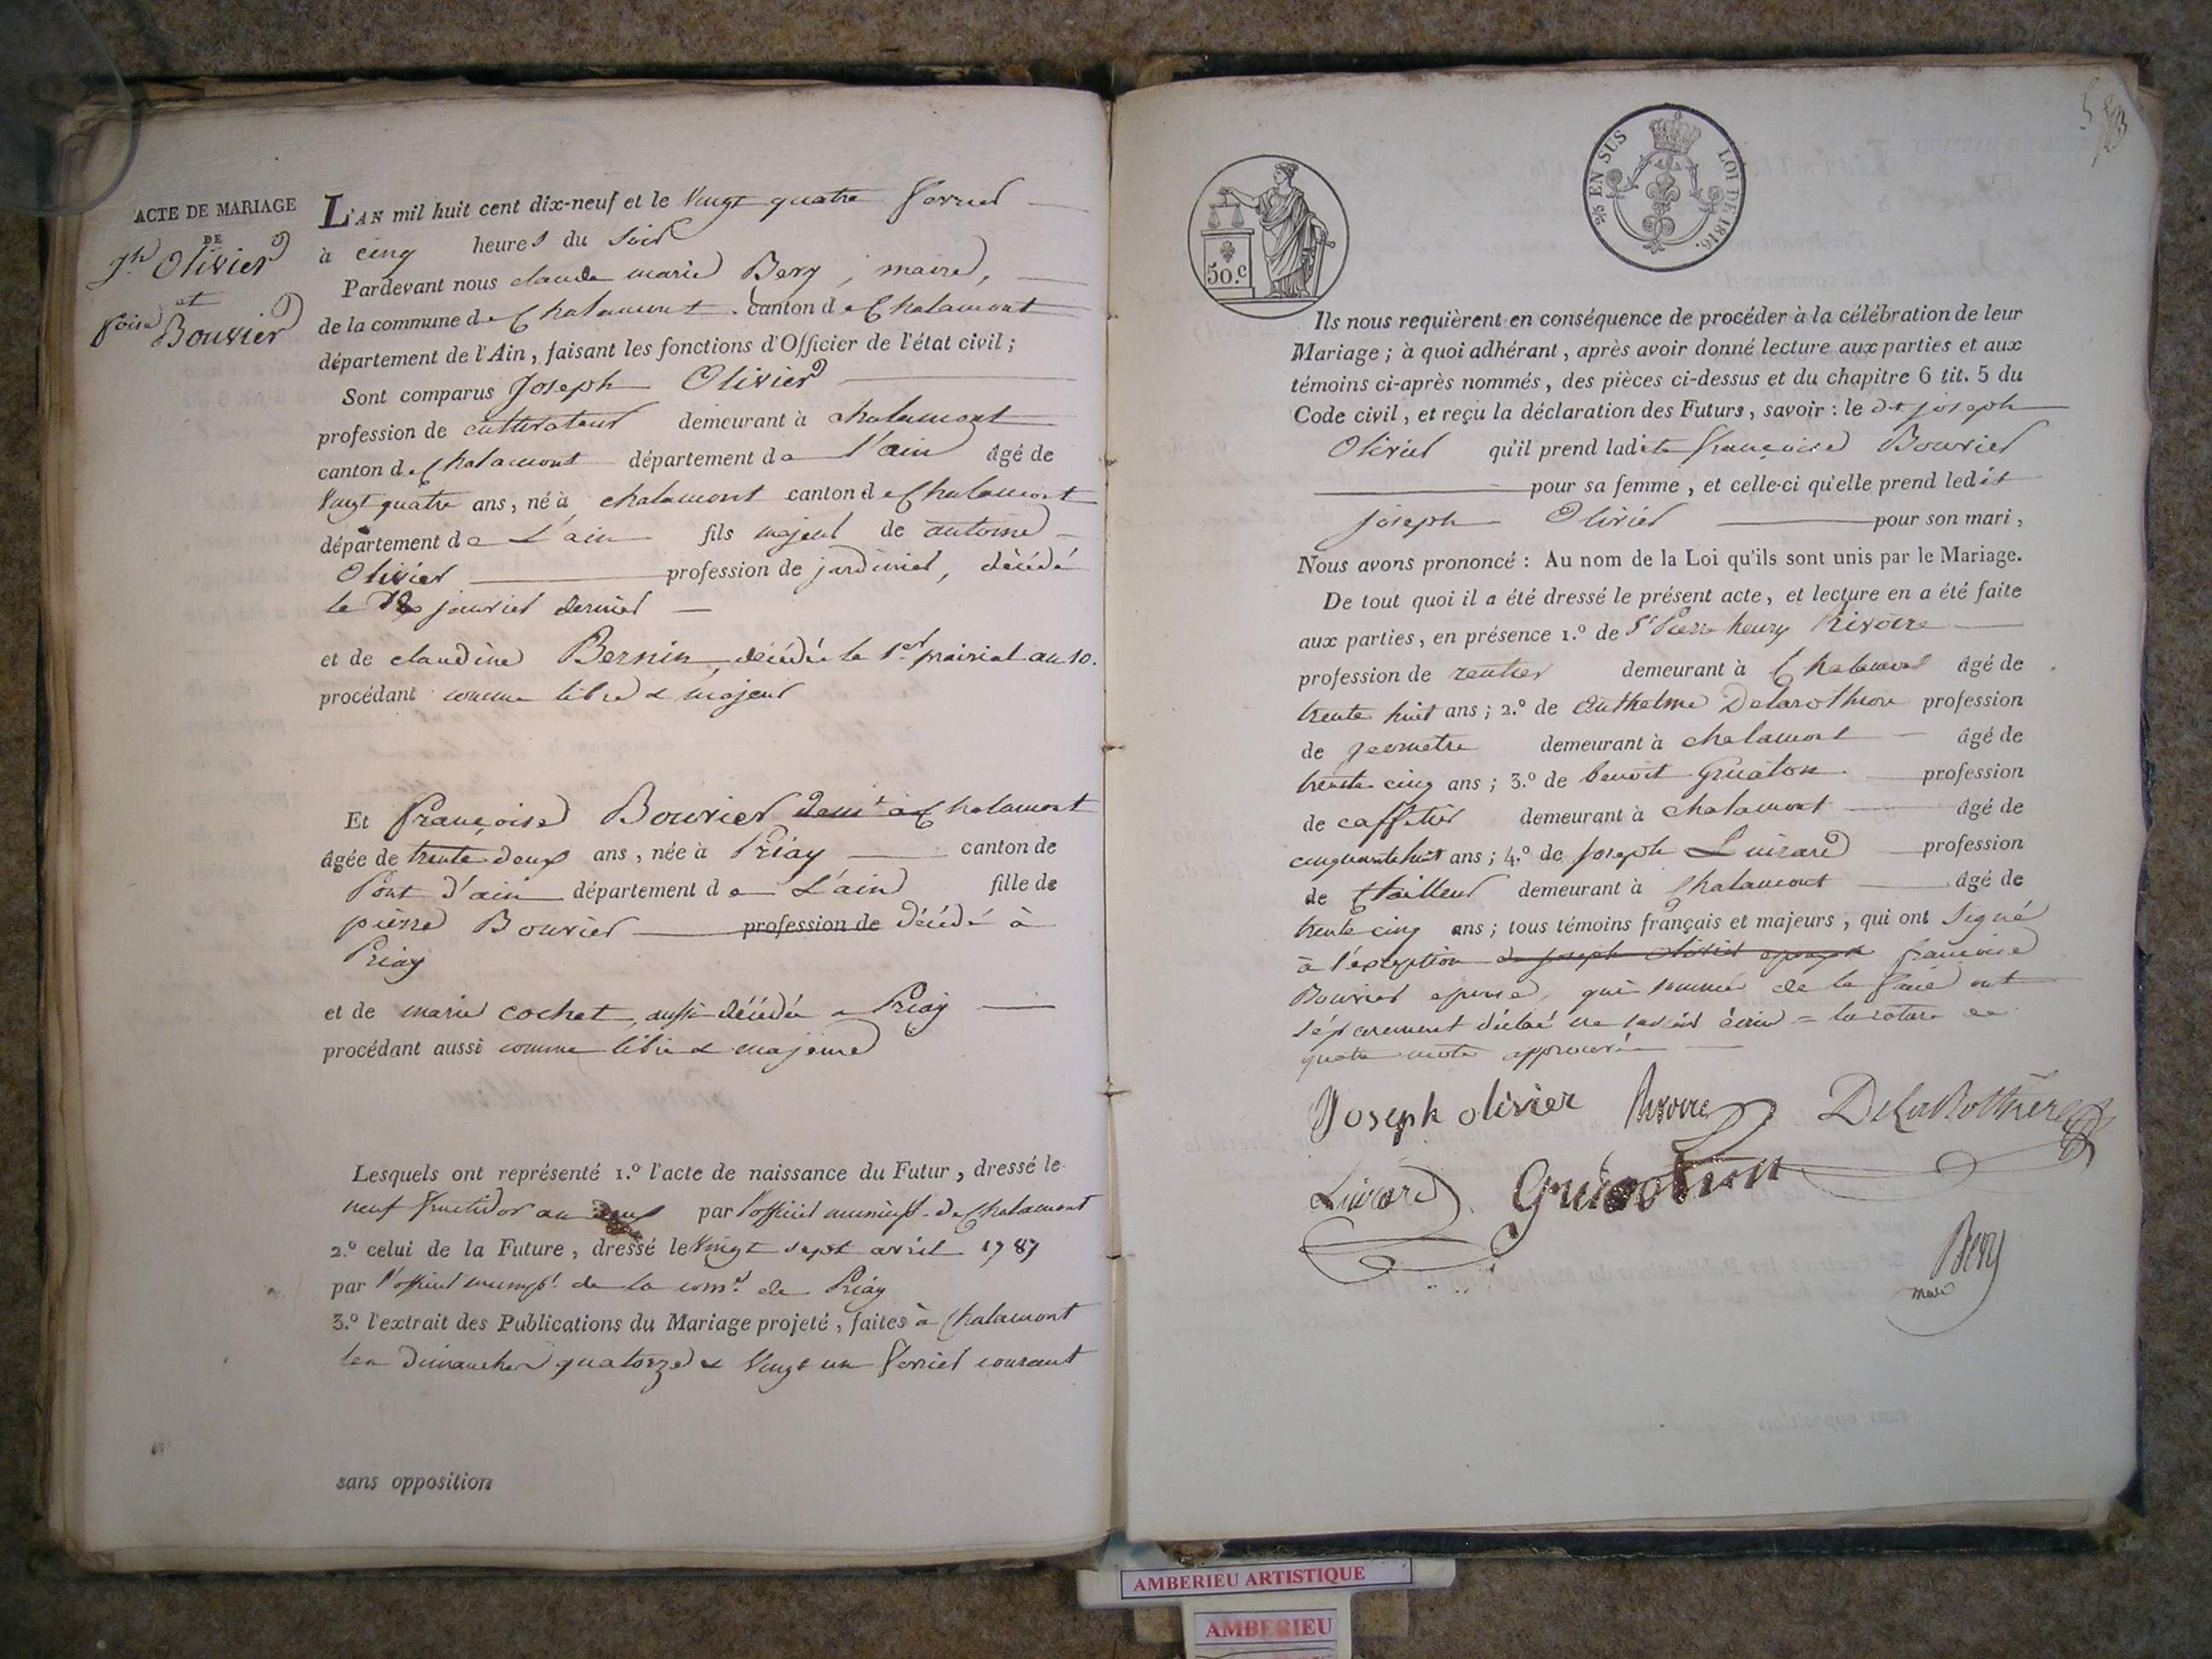 ACTE DE MARIAGE
DE
Jh Olivier
et
foise Bouvier
L'AN mil huit cent dix-neuf et le Vingt quatre fevrier
à cinq heures du soir
Pardevant nous claude marie Bery, maire,
de la commune de Chalamont canton de Chalamont
département de l'Ain, faisant les fonctions d'Officier de l'état civil;
Sont comparus Joseph Olivier
profession de cultivateur demeurant à chalamont
canton de Chalamont département de l'ain âgé de
Vingt quatre ans, né à chalamont canton de Chalamont
département de L'ain fils majeur de antoine
Olivier profession de jardinier, décédé
le janvier dernier
et de claudine Bernin, décédée le 1er prairial an 10.
procédant comme libre & majeur
Et françoise Bouvier demt à Chalamont
âgée de trente deux ans, née à Priay canton de
Pont d'ain département de L'ain fille de
pierre Bouvier profession de décédé à
Priay
et de marie cochet, aussi décédée a Priay
procédant aussi comme libre & majeure
Lesquels ont représenté 1.º l'acte de naissance du Futur, dressé le
neuf fructidor an deux par l'officier municipl. de Chalamont
2.º celui de la Future, dressé le Vingt sept avril 1787
par l'officier municipl. de la come de Priay
3.º l'extrait des Publications du Mariage projeté, faites à Chalamont
les Dimanches quatorze & Vingt un fevrier courant
sans opposition
EN SUS LOI DE 1816.
50.c
Ils nous requièrent en conséquence de procéder à la célébration de leur
Mariage; à quoi adhérant, après avoir donné lecture aux parties et aux
témoins ci-après nommés, des pièces ci-dessus et du chapitre 6 tit. 5 du
Code civil, et reçu la déclaration des Futurs, savoir: le dt joseph
Olivier qu'il prend ladite françoise Bouvier
pour sa femme, et celle-ci qu'elle prend ledit
joseph Olivier pour son mari,
Nous avons prononcé: Au nom de la Loi qu'ils sont unis par le Mariage.
De tout quoi il a été dressé le présent acte, et lecture en a été faite
aux parties, en présence 1.º de Sr Pierre henry Rivoire
profession de rentier demeurant à Chalamont âgé de
trente huit ans; 2.º de Anthelme Delarothiere profession
de geometre demeurant à chalamont âgé de
trente cinq ans; 3.º de benoit Gruaton profession
de caffetier demeurant à chalamont âgé de
cinquante huit ans; 4.º de Joseph Luizard profession
de tailleur demeurant à Chalamont âgé de
trente cinq ans; tous témoins français et majeurs, qui ont signé
à l'exception de joseph olivier epoux & françoise
Bouvier epouse, qui sommée de le faire ont
séparement déclaré ne savoir écrire = la rature de
quatre mots approuvée
Joseph olivier Rivoire DeLaRothiere
Luizard Gruaton
Bery
maire
AMBERIEU ARTISTIQUE
AMBERIEU